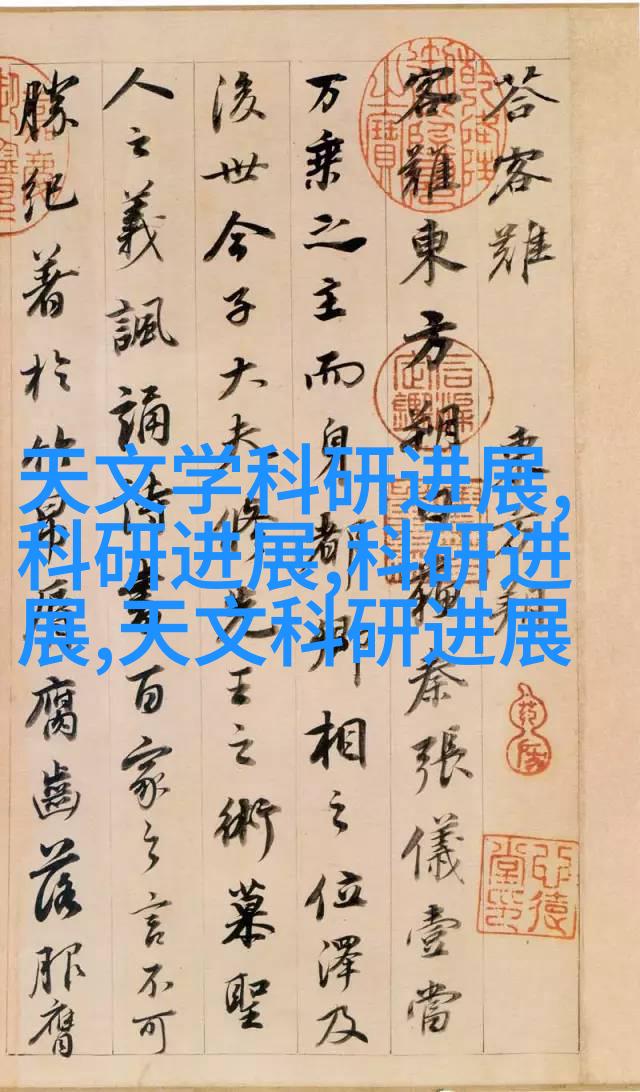 荅客難 東方朔
客難東方朔曰蘇秦張儀壹當
万乘之主而身都卿相之位澤及
後世今子大夫脩先王之術慕聖
人之義諷誦詩書百家之言不可
勝紀著於竹帛脣腐齒落服膺
天文学科研进展,
科研进展,科研进
展,天文科研进展